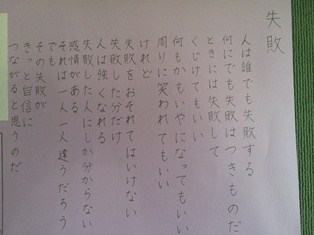 失敗
人は誰でも失敗する
何にでも失敗はつきものだ
ときには失敗して
くじけてもいい
何もかもいやになってもいい
周りに笑われてもいい
けれど
失敗をおそれてはいけない
失敗した分だけ
人は強くなれる
失敗した人にしか分からない
感情がある
それは一人一人違うだろう
でも
その失敗が
きっと自信に
つながると思うのだ